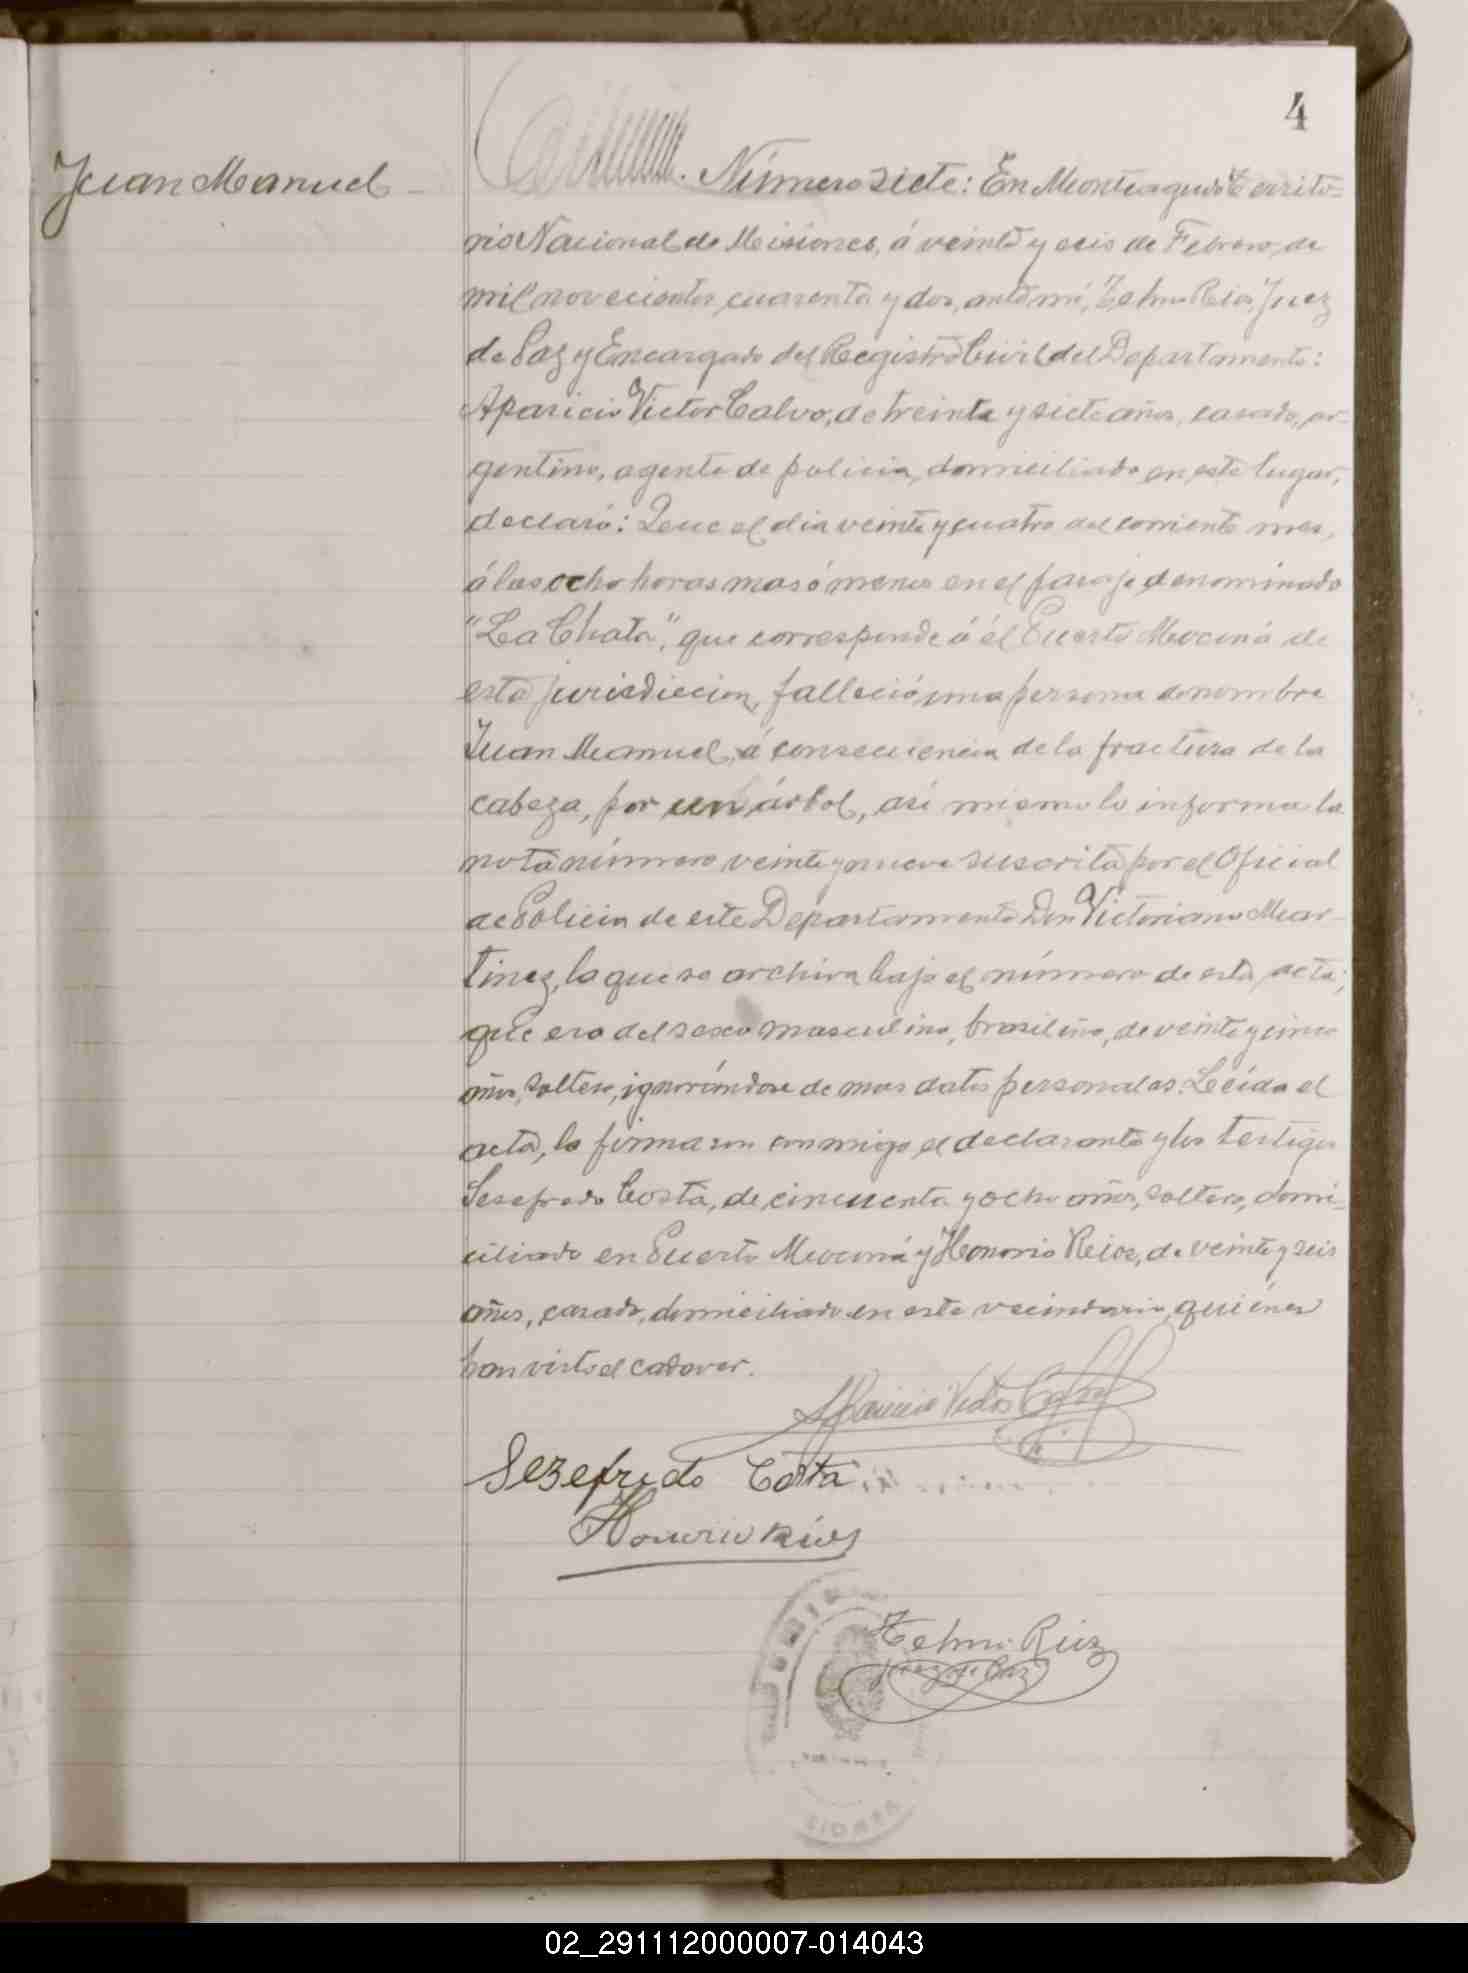 4
Juan Manuel
Número siete: En Monteagudo Territo-
rio Nacional de Misiones, á veinte y seis de Febrero de
mil novecientos cuarenta y dos, ante mí, Telmo Ríos, Juez
de Paz y Encargado del Registro Civil del Departamento:
Aparicio Victor Calvo, de treinta y siete años, casado, ar-
gentino, agente de policia, domiciliado en este lugar,
declaró: Que el dia veinte y cuatro del corriente mes,
á las ocho horas mas ó menos en el paraje denominado
"La Chata", que corresponde á él Puerto Mocaná de
esta jurisdiccion, falleció una persona de nombre
Juan Manuel, á consecuencia de la fractura de la
cabeza, por un árbol, asi mismo lo informa la
nota número veinte y nueve suscrita por el Oficial
de Policia de este Departamento Don Victoriano Mar-
tinez, la que se archiva bajo el número de esta acta;
que era del sexo masculino, brasileño, de veinte y cinco
años, soltero, ignorándose de mas datos personales. Leída el
acta, la firmaron conmigo el declarante y los testigos
Sesefredo Costa, de cincuenta y ocho años, soltero, domi-
ciliado en Puerto Mocaná y Honorio Ríos, de veinte y seis
años, casado, domiciliado en este vecindario, quiénes
han visto el cadaver.
Aparicio Victor Calvo
Sezefredo Costa
Honorio Ríos
Telmo Ríos
Juez de Paz
02_291112000007-014043